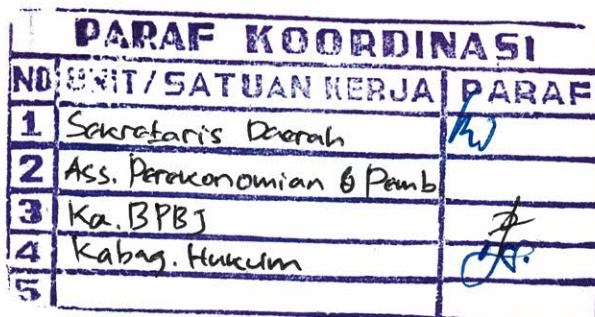 PARAF KOORDINASI
NO UNIT/SATUAN KERJA PARAF
1 Sekretaris Daerah
2 Ass. Perekonomian & Pemb
3 Ka. BPBJ
4 Kabag. Hukum
5